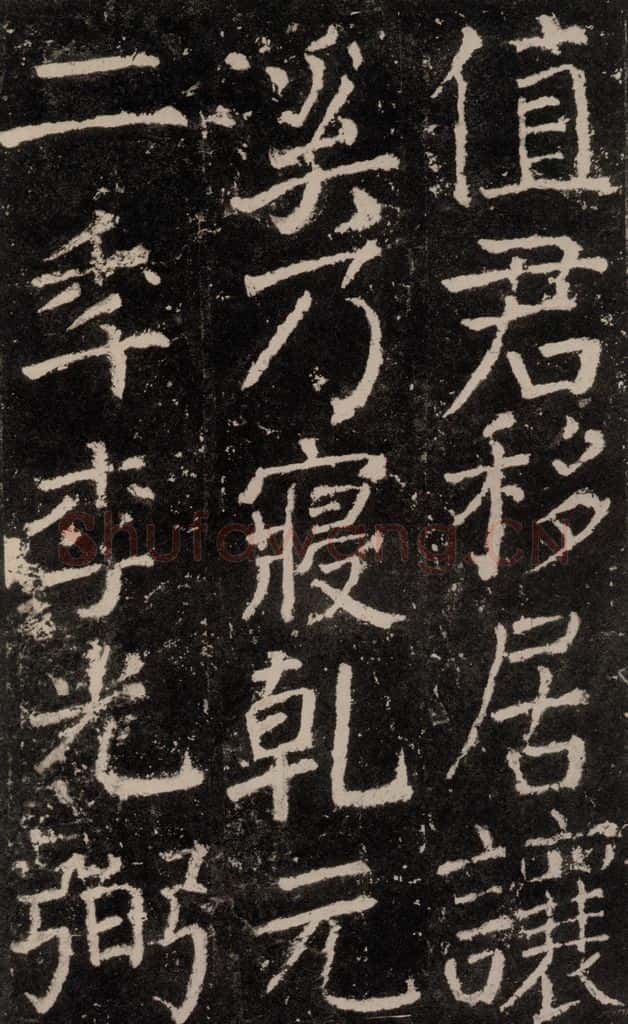 值君移居讓
溪乃寢乾元
二年李光弼
Shufawang.CN